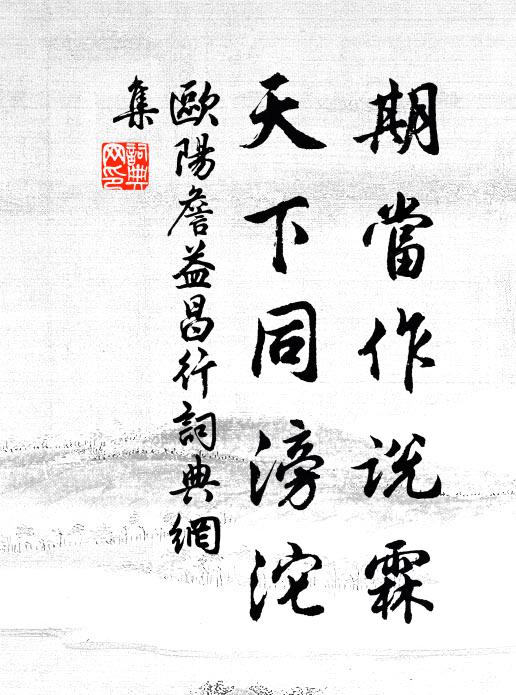 期當作說霖
天下同滂沱
歐陽詹益昌行詞典網
集
詞典网印